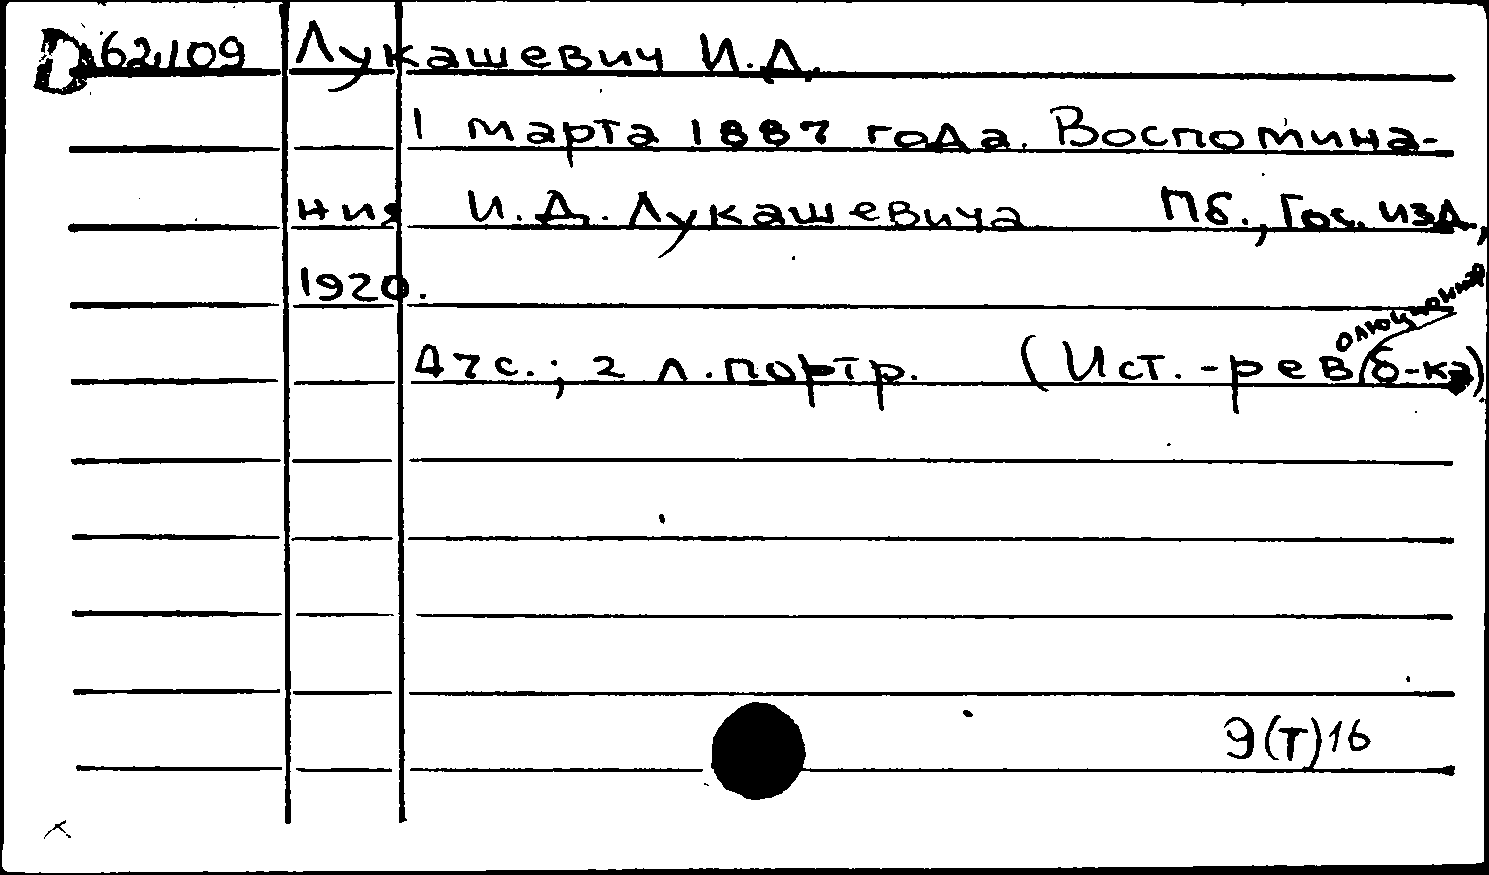 D 62/109 Лукашевич И.Д.
1 марта 1887 года. Воспомина-
ния И.Д. Лукашевича Пб., Гос. изд.,
1920.
47 с.; 2 л. портр. (Ист.-революционная б-ка)
9(Т)16